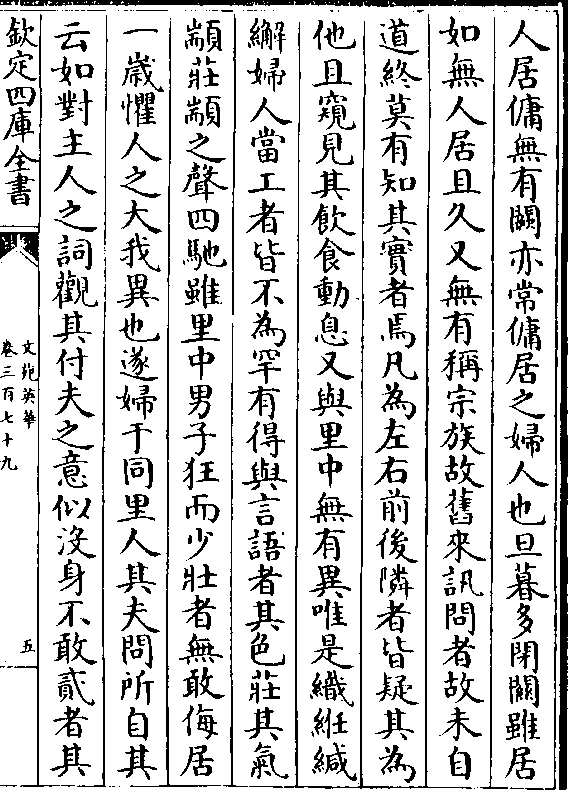 人居傭無有闕亦常傭居之婦人也旦暮多閉關雖居
如無人居且久又無有稱宗族故舊來訊問者故未自
道終莫有知其實者焉凡為左右前後隣者皆疑其為
他且窺見其飲食動息又與里中無有異唯是織紝緘
繲婦人當工者皆不為罕有得與言語者其色莊其氣
顓莊顓之聲四馳雖里中男子狂而少壯者無敢侮居
一歲懼人之大我異也遂婦于同里人其夫問所自其
云如對主人之詞觀其付夫之意似沒身不敢貳者其
欽定四庫全書
文苑英華
卷三百七十九
五